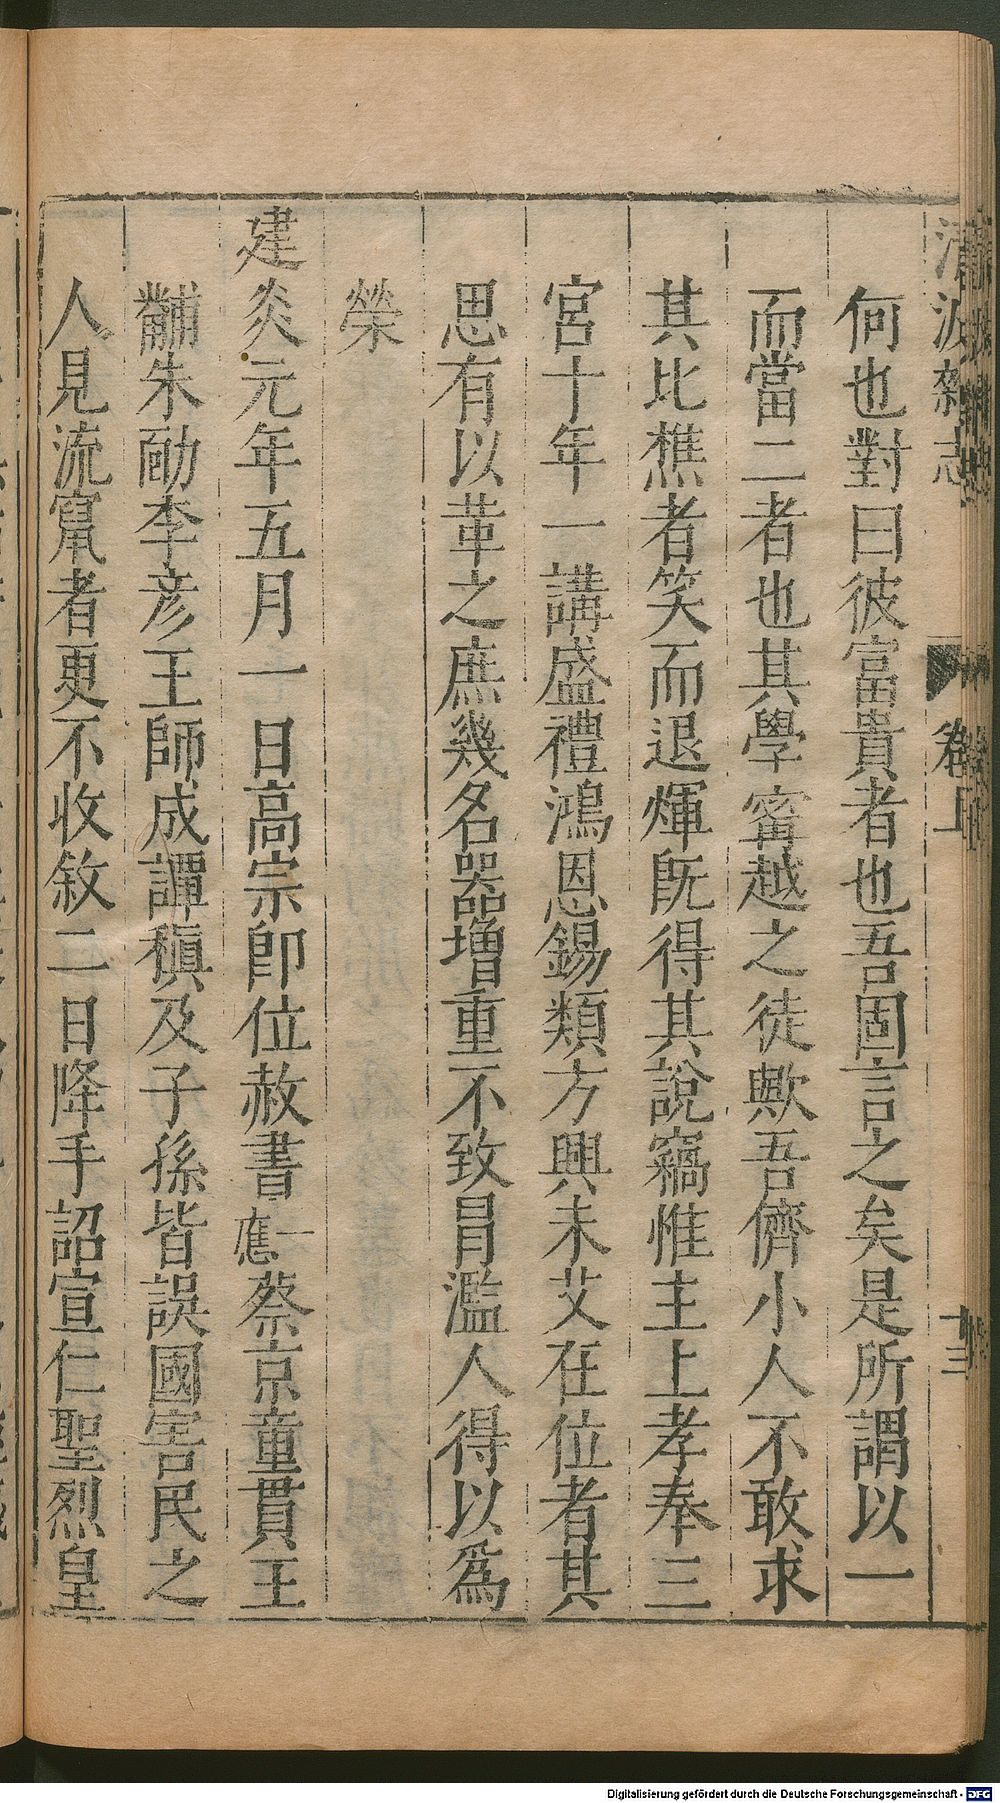 清波雜志
卷上
十三
何也對曰彼富貴者也吾固言之矣是所謂以一
而當二者也其學甯越之徒歟吾儕小人不敢求
其比樵者笑而退煇旣得其說竊惟主上孝奉三
宮十年一講盛禮鴻恩錫類方興未艾在位者其
思有以革之庶幾名器增重不致冒濫人得以爲
榮
建炎元年五月一日高宗卽位赦書一應蔡京童貫王
黼朱勔李彦王師成譚稹及子孫皆誤國害民之
人見流竄者更不收敘二日降手詔宣仁聖烈皇
Digitalisierung gefördert durch die Deutsche Forschungsgemeinschaft - DFG